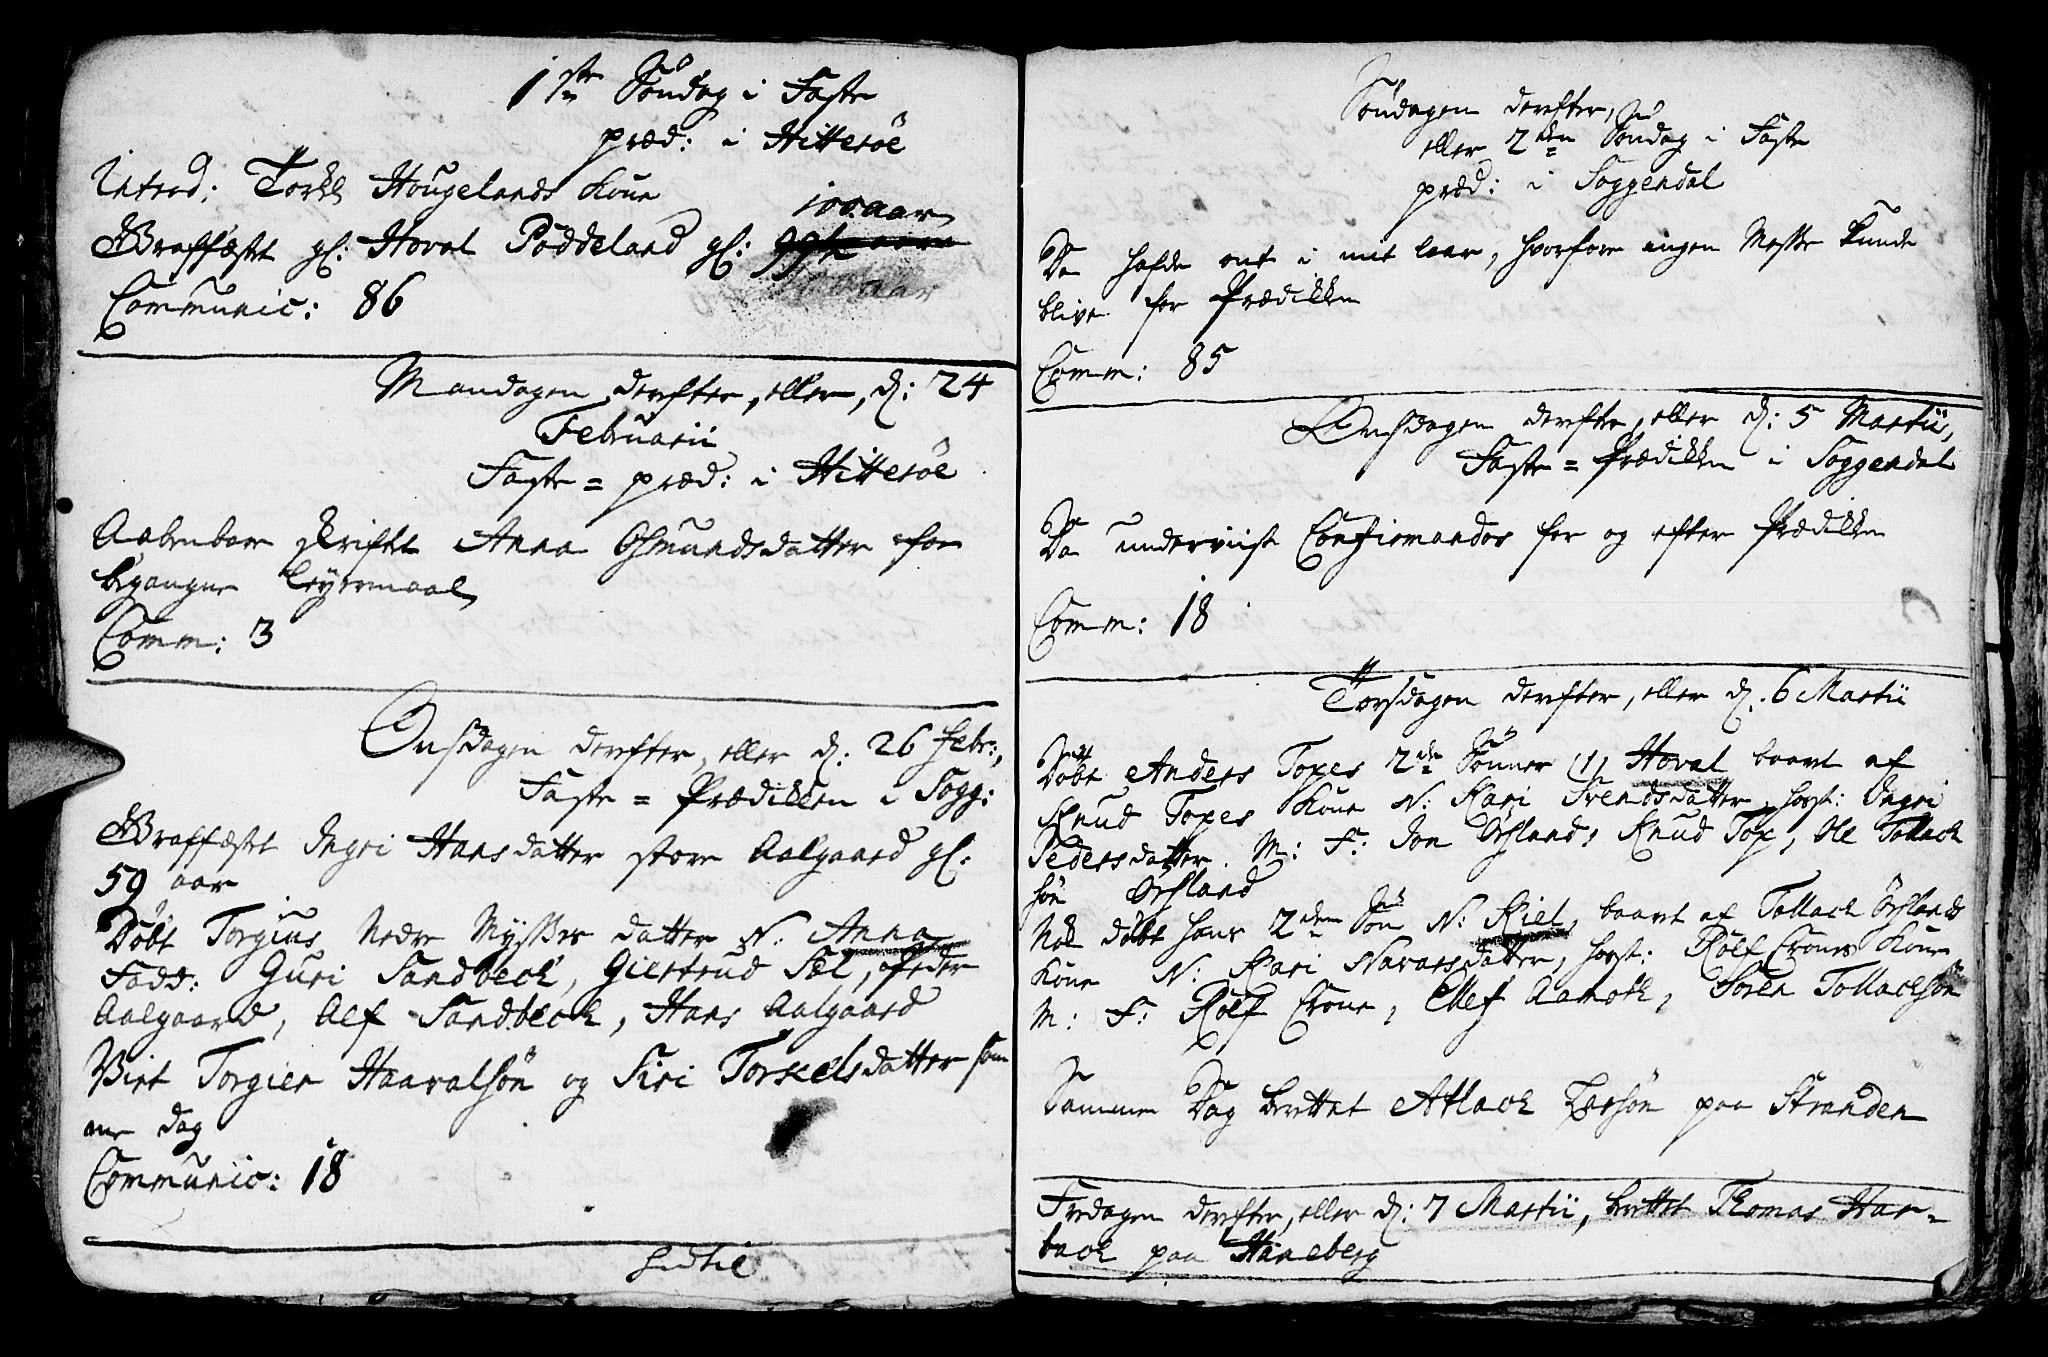 1ste Søndag i Faste
præd: i Hitterøe
Introd: Torkl Hougelands Kone
100 aar
Graffæstet gl: Hoval Poddeland gl:
Communic: 86
Mandagen derefter, eller, d: 24
Februarii
Faste = præd: i Hitterøe
Aabenbare skriftet Anna Osmundsdatter for
begangne Leyermaal
Comm: 3
Onsdagen derefter, eller d: 26 Febr:,
Faste = Prædikken i Sogg:
Graffæstet Ingri Hansdatter store Aalgaard gl:
59 aar
Døbt Torgius Nedre Mysses datter N: Anna
Fadd: Guri Sandbeck, Giertrud Sel, Peder
Aalgaard, Alf Sandbeck, Hans Aalgaard
Viet Torgier Haavalsøn og Siri Torkelsdatter sam
me dag
Communic: 18
hidtil
Søndagen derefter,
eller 2den Søndag i Faste
præd: i Soggendal
Da hafde ont i mit laar, hvorfore ingen Messe kunde
blive for Prædikken
Comm: 85
Onsdagen derefter, eller d: 5 Martii,
Faste = Prædikken i Soggendal
Da underviist Confirmandos for og efter Prædikken
Comm: 18
Torsdagen derefter, eller d: 6 Martii
Døbt Anders Toxes 2de Sønner (1) Hoval baaret af
Knud Toxes Kone N: Kari Svendsdatter, host: Ingri
Pedersdatter. M: F: Jon Ørsland, Knud Tox, Ole Tollack
søn Ørsland
Nok døbt hans 2den Søn N: Kiel, baaret af Tollack Ørslands
Kone N: Kari Navarsdatter, host: Rolf Crones Kone
M: F: Rolf Crone, Ellef Aamot, Søren Tollacksøn
Samme Dag berettet Atlack Persøn paa Stranden
Fredagen derefter, eller d: 7 Martii, berettet Thomas Har=
back paa Haneberg